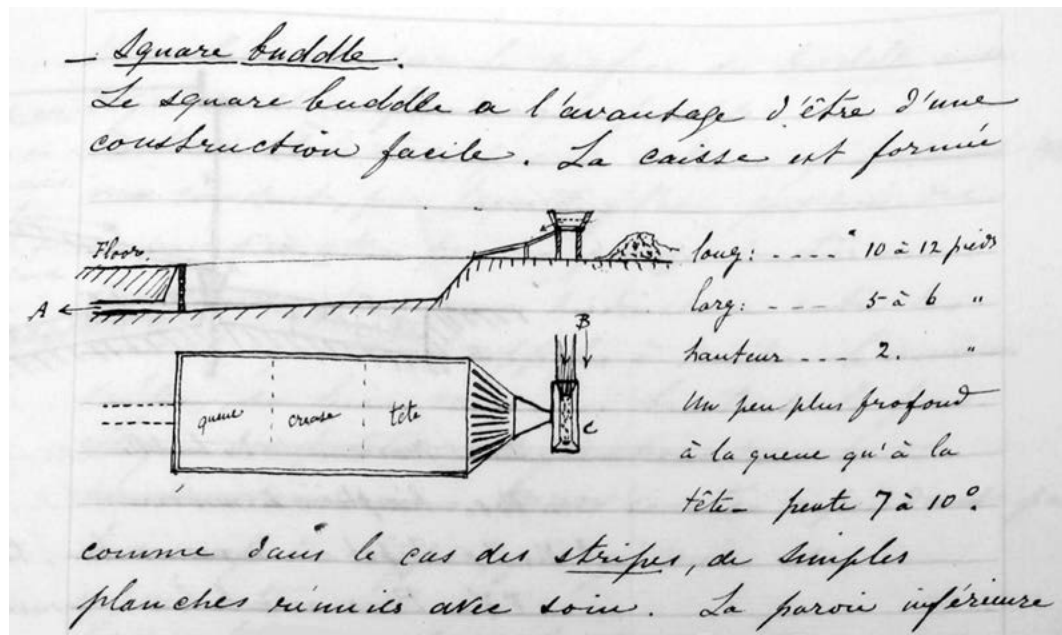 — Square buddle.
Le square buddle a l'avantage d'être d'une
construction facile. La caisse est formée
Floor.
A
long: - - - - 10 à 12 pieds
larg: - - - - 5 à 6 "
hauteur - - - 2. "
Un peu plus profond
à la queue qu'à la
tête - pente 7 à 10°.
B
queue crease tête
C
comme dans le cas des stripes, de simples
planches réunies avec soin. La paroi inférieure